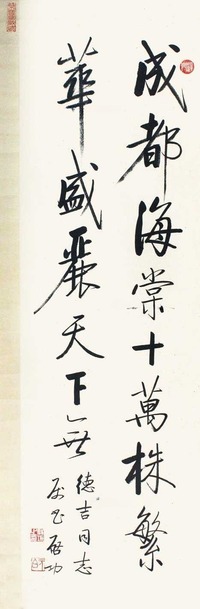 成都海棠十萬株繁
華盛麗天下無
德吉同志
屬書 啓功